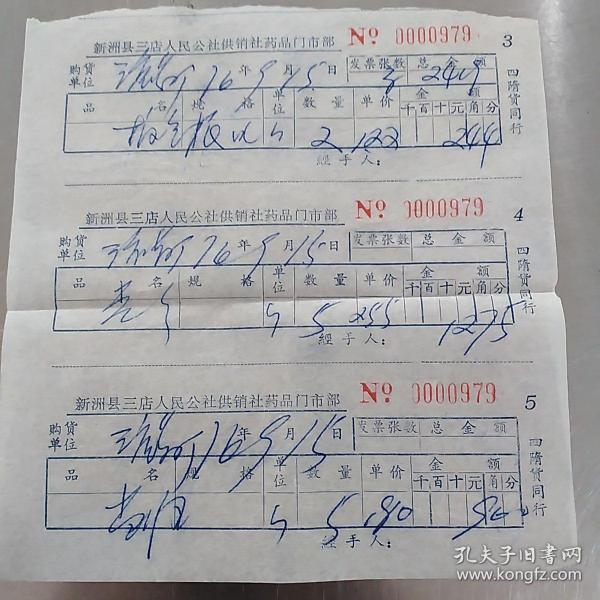 新洲县三店人民公社供销社药品门市部 No 0000979 3
购货单位 76年9月15日 发票张数 总金额
品名 规格 单位 数量 单价 金额 千百十元角分
2 1.22 244
經手人:
四隋货同行
新洲县三店人民公社供销社药品门市部 No 0000979 4
购货单位 76年9月15日 发票张数 总金额
品名 规格 单位 数量 单价 金额 千百十元角分
5 255 1275
經手人:
四隋货同行
新洲县三店人民公社供销社药品门市部 No 0000979 5
购货单位 76年9月15日 发票张数 总金额
品名 规格 单位 数量 单价 金额 千百十元角分
5
經手人:
四隋货同行
孔夫子旧书网
www.kongfz.com